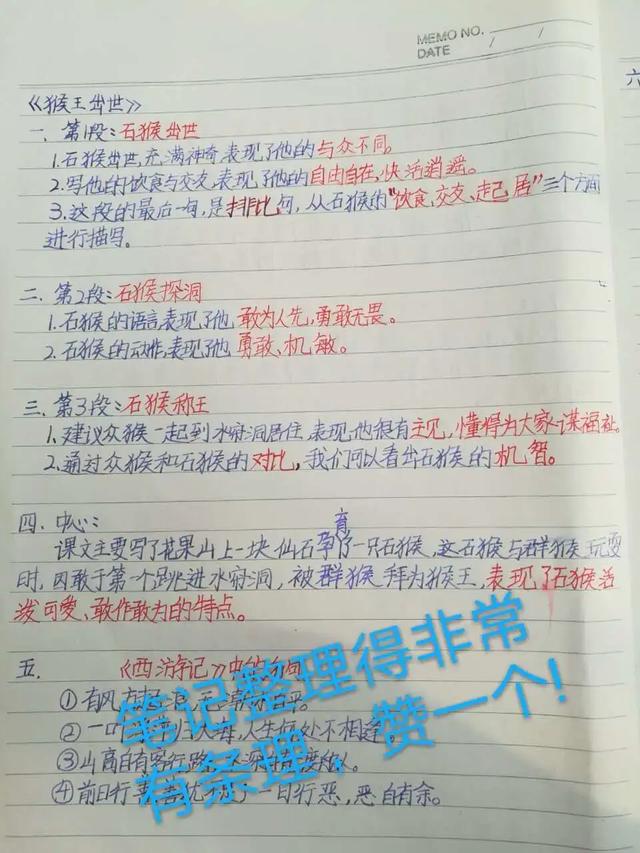 MEMO NO.
DATE / /
六
《猴王出世》
一. 第1段:石猴出世
1.石猴出世,充满神奇,表现了他的与众不同。
2.写他的饮食与交友,表现了他的自由自在,快活逍遥。
3.这段的最后一句,是排比句,从石猴的“饮食、交友、起居”三个方面
进行描写。
二. 第2段:石猴探洞
1.石猴的语言表现了他 敢为人先,勇敢无畏。
2.石猴的动作,表现了他 勇敢、机敏。
三. 第3段:石猴称王
1.建议众猴一起到水帘洞居住,表现他很有主见,懂得为大家谋福祉。
2.通过众猴和石猴的对比,我们可以看出石猴的机智。
四. 中心:
育
课文主要写了花果山上一块仙石孕了一只石猴,这石猴与群猴玩耍
时,因敢于第一个跳进水帘洞,被群猴拜为猴王,表现了石猴活
泼可爱、敢作敢为的特点。
五. 《西游记》中的句
①有风 平。
②一 大海,人生何处不相逢。
③山高自有客行路, 人。
④前日行善 一日行恶,恶自有余。
笔记整理得非常
有条理,赞一个!